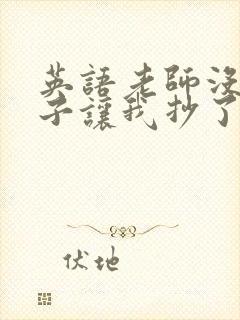 英語老師沒
子讓我抄了
伏地